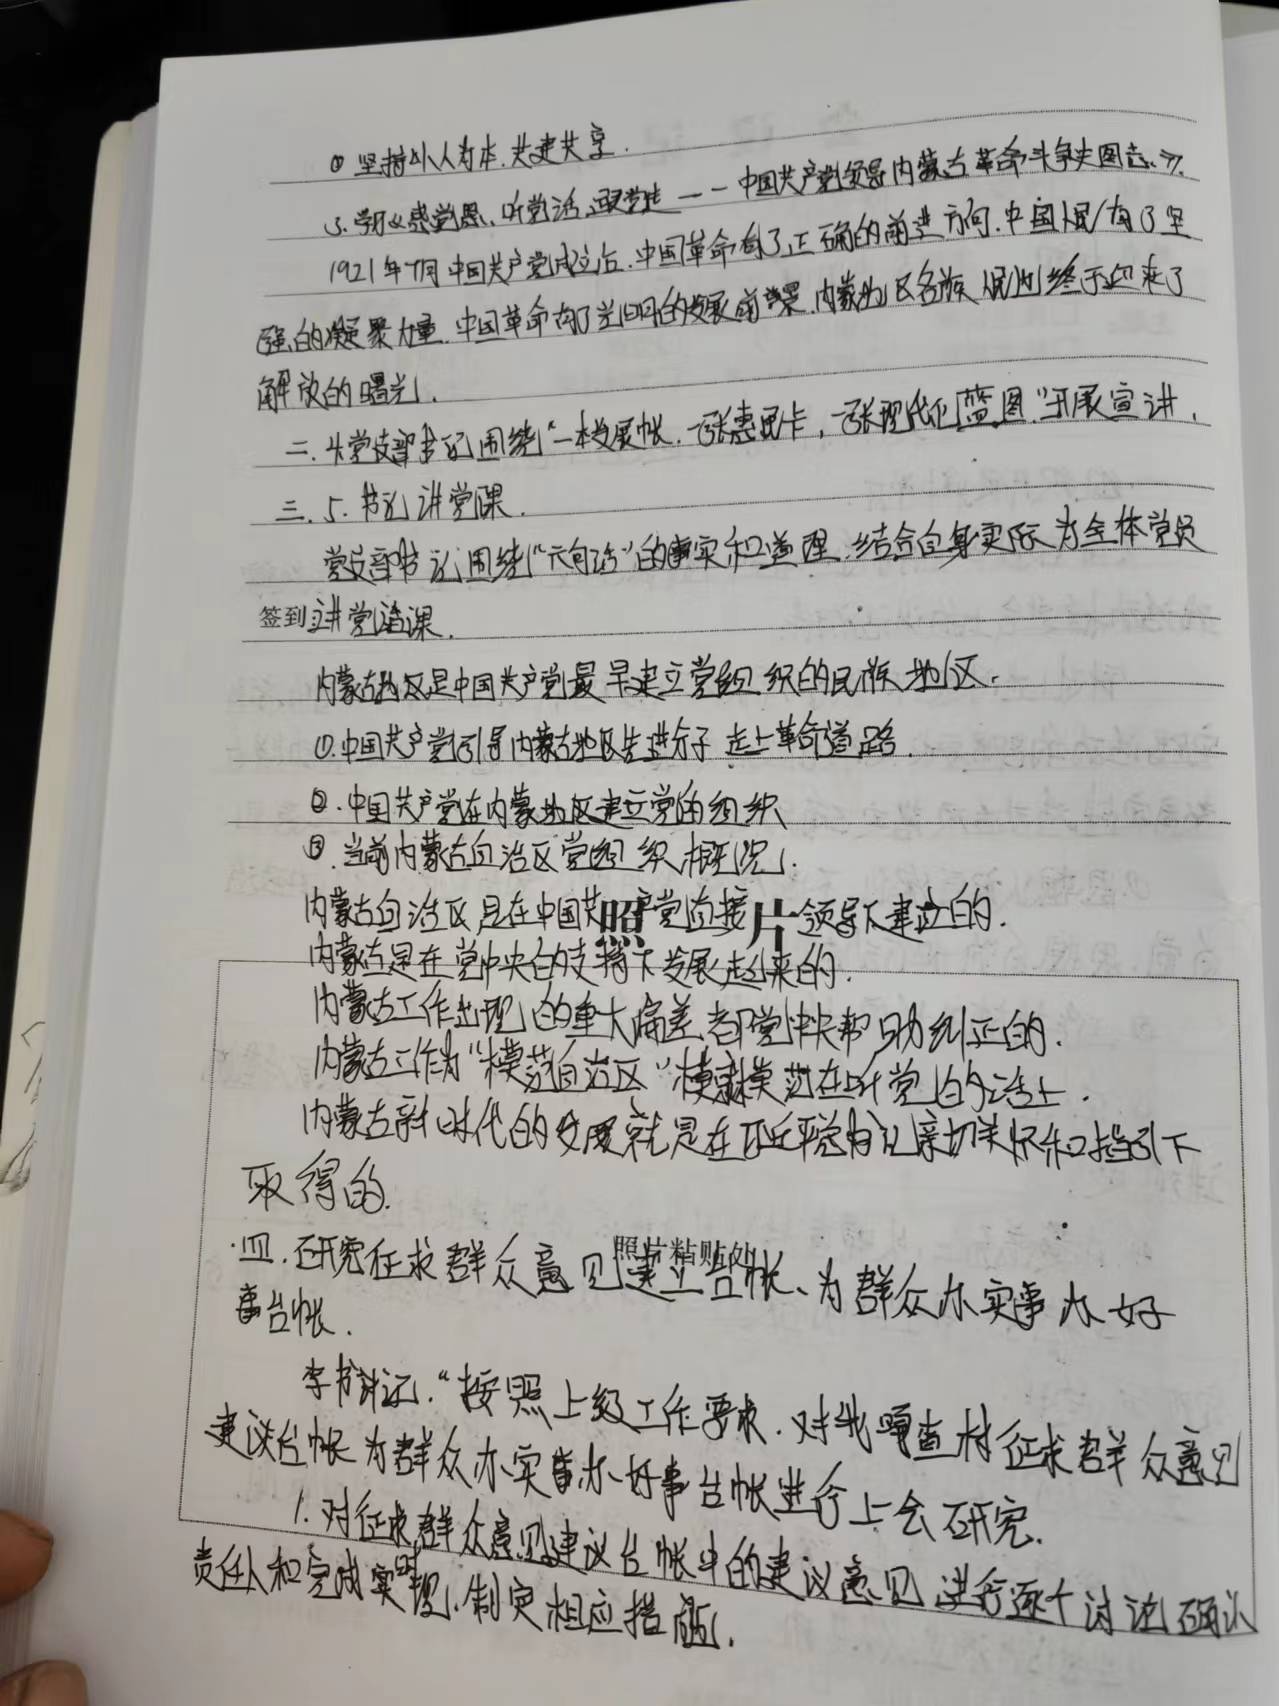 ①坚持以人为本.共建共享.
3.学习《感党恩、听党话、跟党走——中国共产党领导内蒙古革命斗争史图志》.
1921年7月中国共产党成立后.中国革命有了正确的前进方向.中国人民有了坚
强的凝聚力量.中国革命有了光明的发展前景.内蒙地区各族人民也终于迎来了
解放的曙光.
二.4.党支部书记围绕"一本发展帐.一张惠民卡,一张现代化蓝图"开展宣讲.
三.5.书记讲党课.
党支部书记围绕"六句话"的事实和道理.结合自身实际为全体党员
签到 讲党课.
内蒙古地区是中国共产党最早建立党组织的民族地区.
①.中国共产党引导内蒙古地区先进分子走上革命道路.
②.中国共产党在内蒙地区建立党的组织
③.当前内蒙古自治区党组织概况.
内蒙古自治区是在中国共产党直接领导下建立的.
照 片
内蒙古是在党中央的支持下发展起来的.
内蒙古工作出现的重大偏差都是党中央帮助纠正的.
内蒙古工作为"模范自治区"模就模范在听党的话上.
内蒙古新时代的发展就是在习近平总书记亲切关怀和指引下
取得的.
四.研究征求群众意见建立台帐、为群众办实事办好
照片粘贴处
事台帐.
李书记."按照上级工作要求.对我嘎查村征求群众意见
建议台帐为群众办实事办好事台帐进行上会研究.
1.对征求群众意见建议台帐中的建议意见进行逐个讨论确认
责任人和完成实现.制定相应措施.